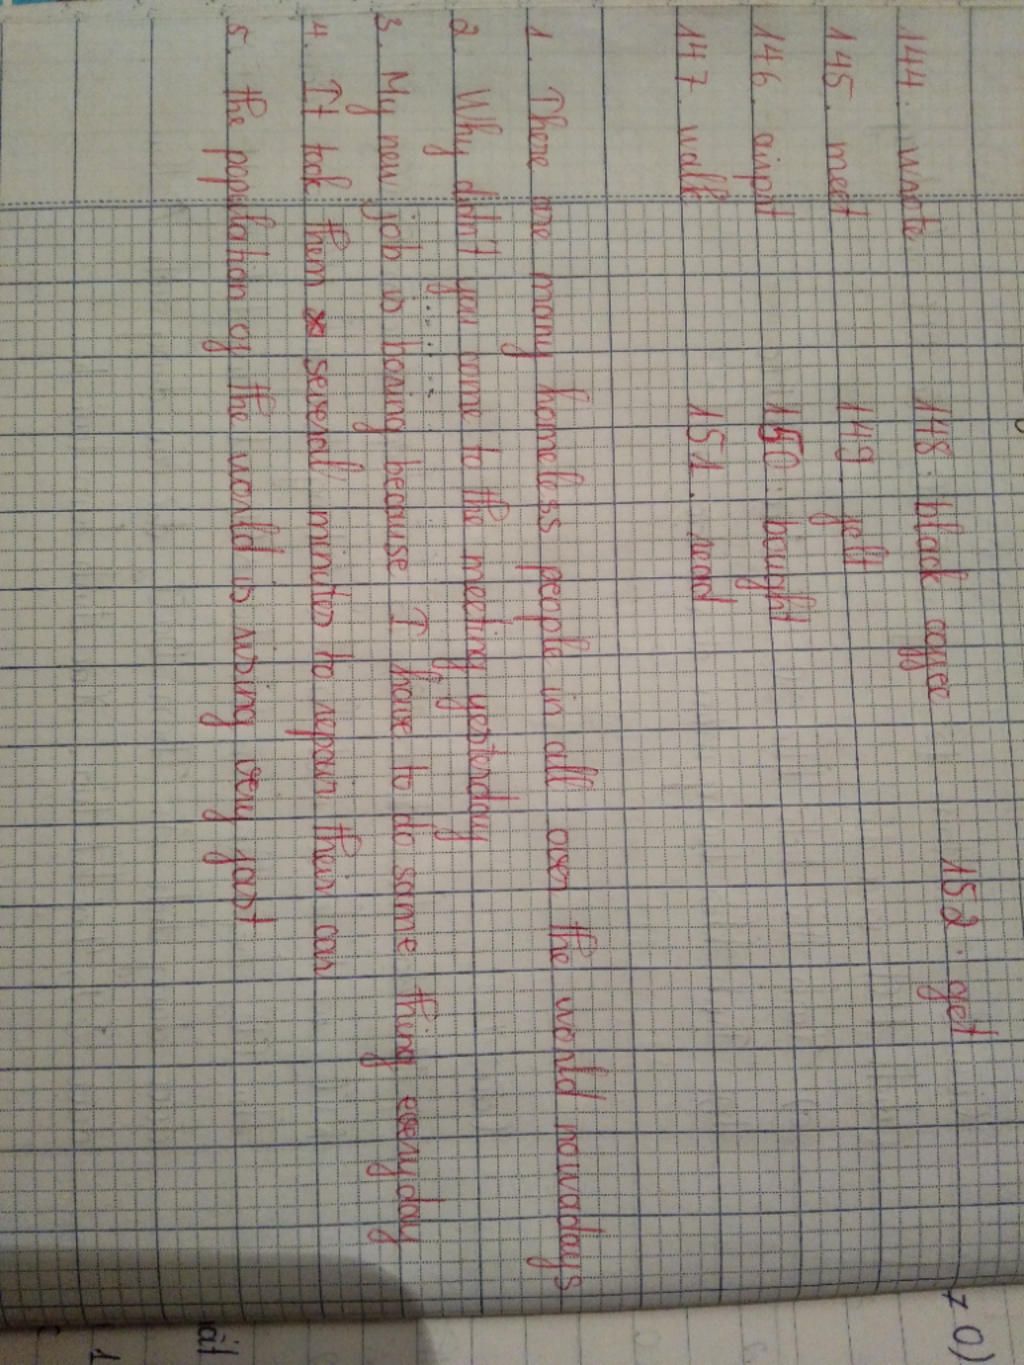 144. wrote 148. black coffee 152. get
145. meet 149. fell
146. airport 150. bought
147. walk 151. road
1. There are many homeless people in all over the world nowadays
2. Why didn't you come to the meeting yesterday
3. My new job is boring because I have to do same thing everyday
4. It took them several minutes to repair their car
5. the population of the world is rising very fast